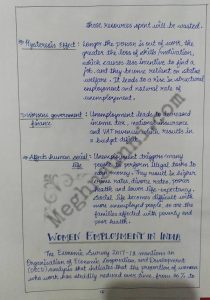 those resources spent will be wasted.
→ Hysteresis Effect : Longer the person is out of work, the
greater the loss of skills/motivation,
which causes less incentive to find a
job, and they become reliant on state
welfare. It leads to a rise in structural
employment and natural rate of
unemployment.
government
finance
: Unemployment leads to decreased
income tax, national insurance,
and VAT revenue which results in
a budget deficit.
→ Affects human social
life
: Unemployment triggers many
illegal tasks to
money. They result in higher
crime rates, divorce rates, poorer
health and lower life expectancy.
Social life becomes difficult with
more unemployed people as are the
families affected with poverty and
poor health.
WOMEN EMPLOYMENT IN INDIA
The Economic Survey 2017-18 mentions an
Organisation of Economic Cooperation and Development
(OECD) analysis that indicates that the proportion of women
who work has steadily reduced over time, from 36 % to